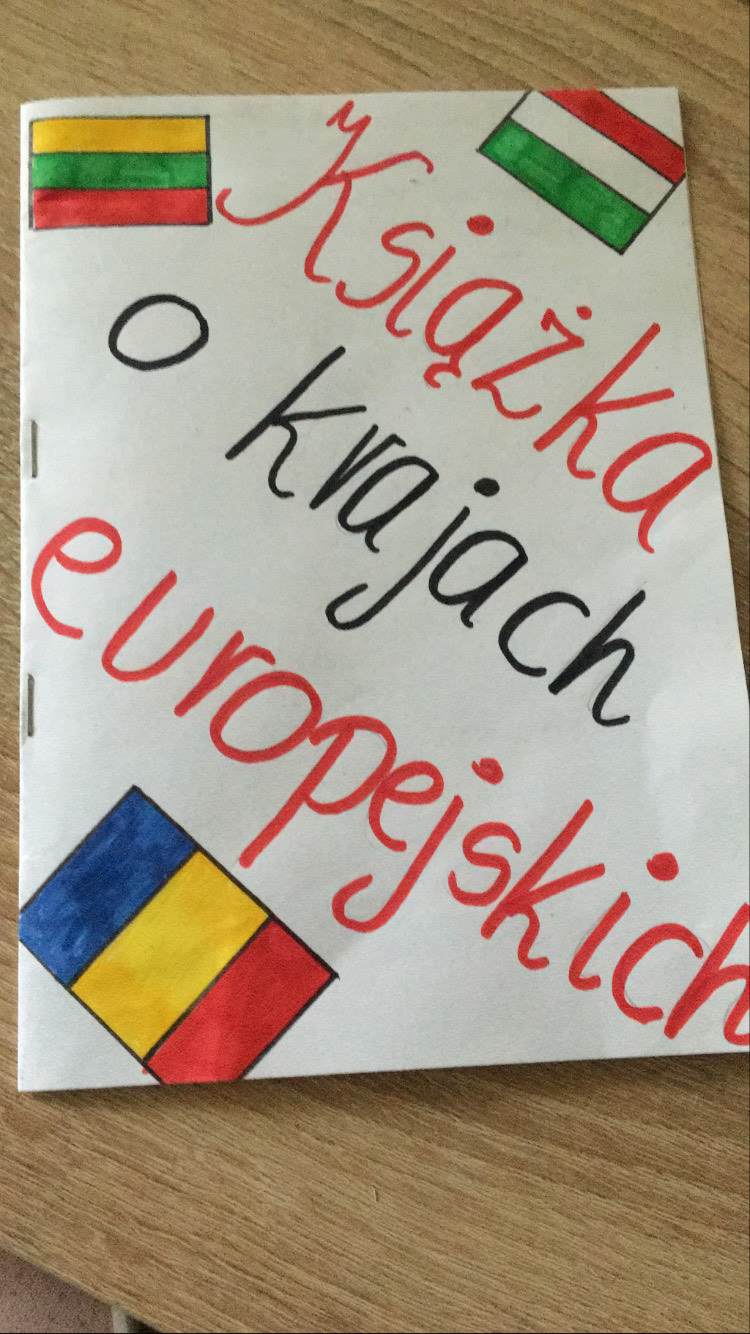 Książka
o krajach
europejskich